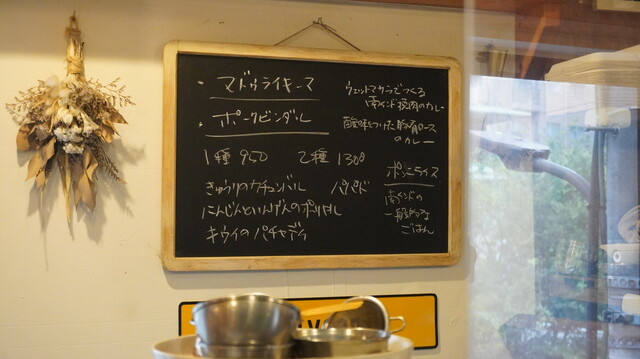 ・マドゥライキーマ
ウェットマサラでつくる
南インド挽肉のカレー
・ポークビンダル
酸味をつけた豚肩ロース
のカレー
1種 950 2種 1300
きゅうりのカチュンバル パパド
にんじんといんげんのポリヤル
キウイのパチャディ
ポンニライス
南インドの
一般的な
ごはん